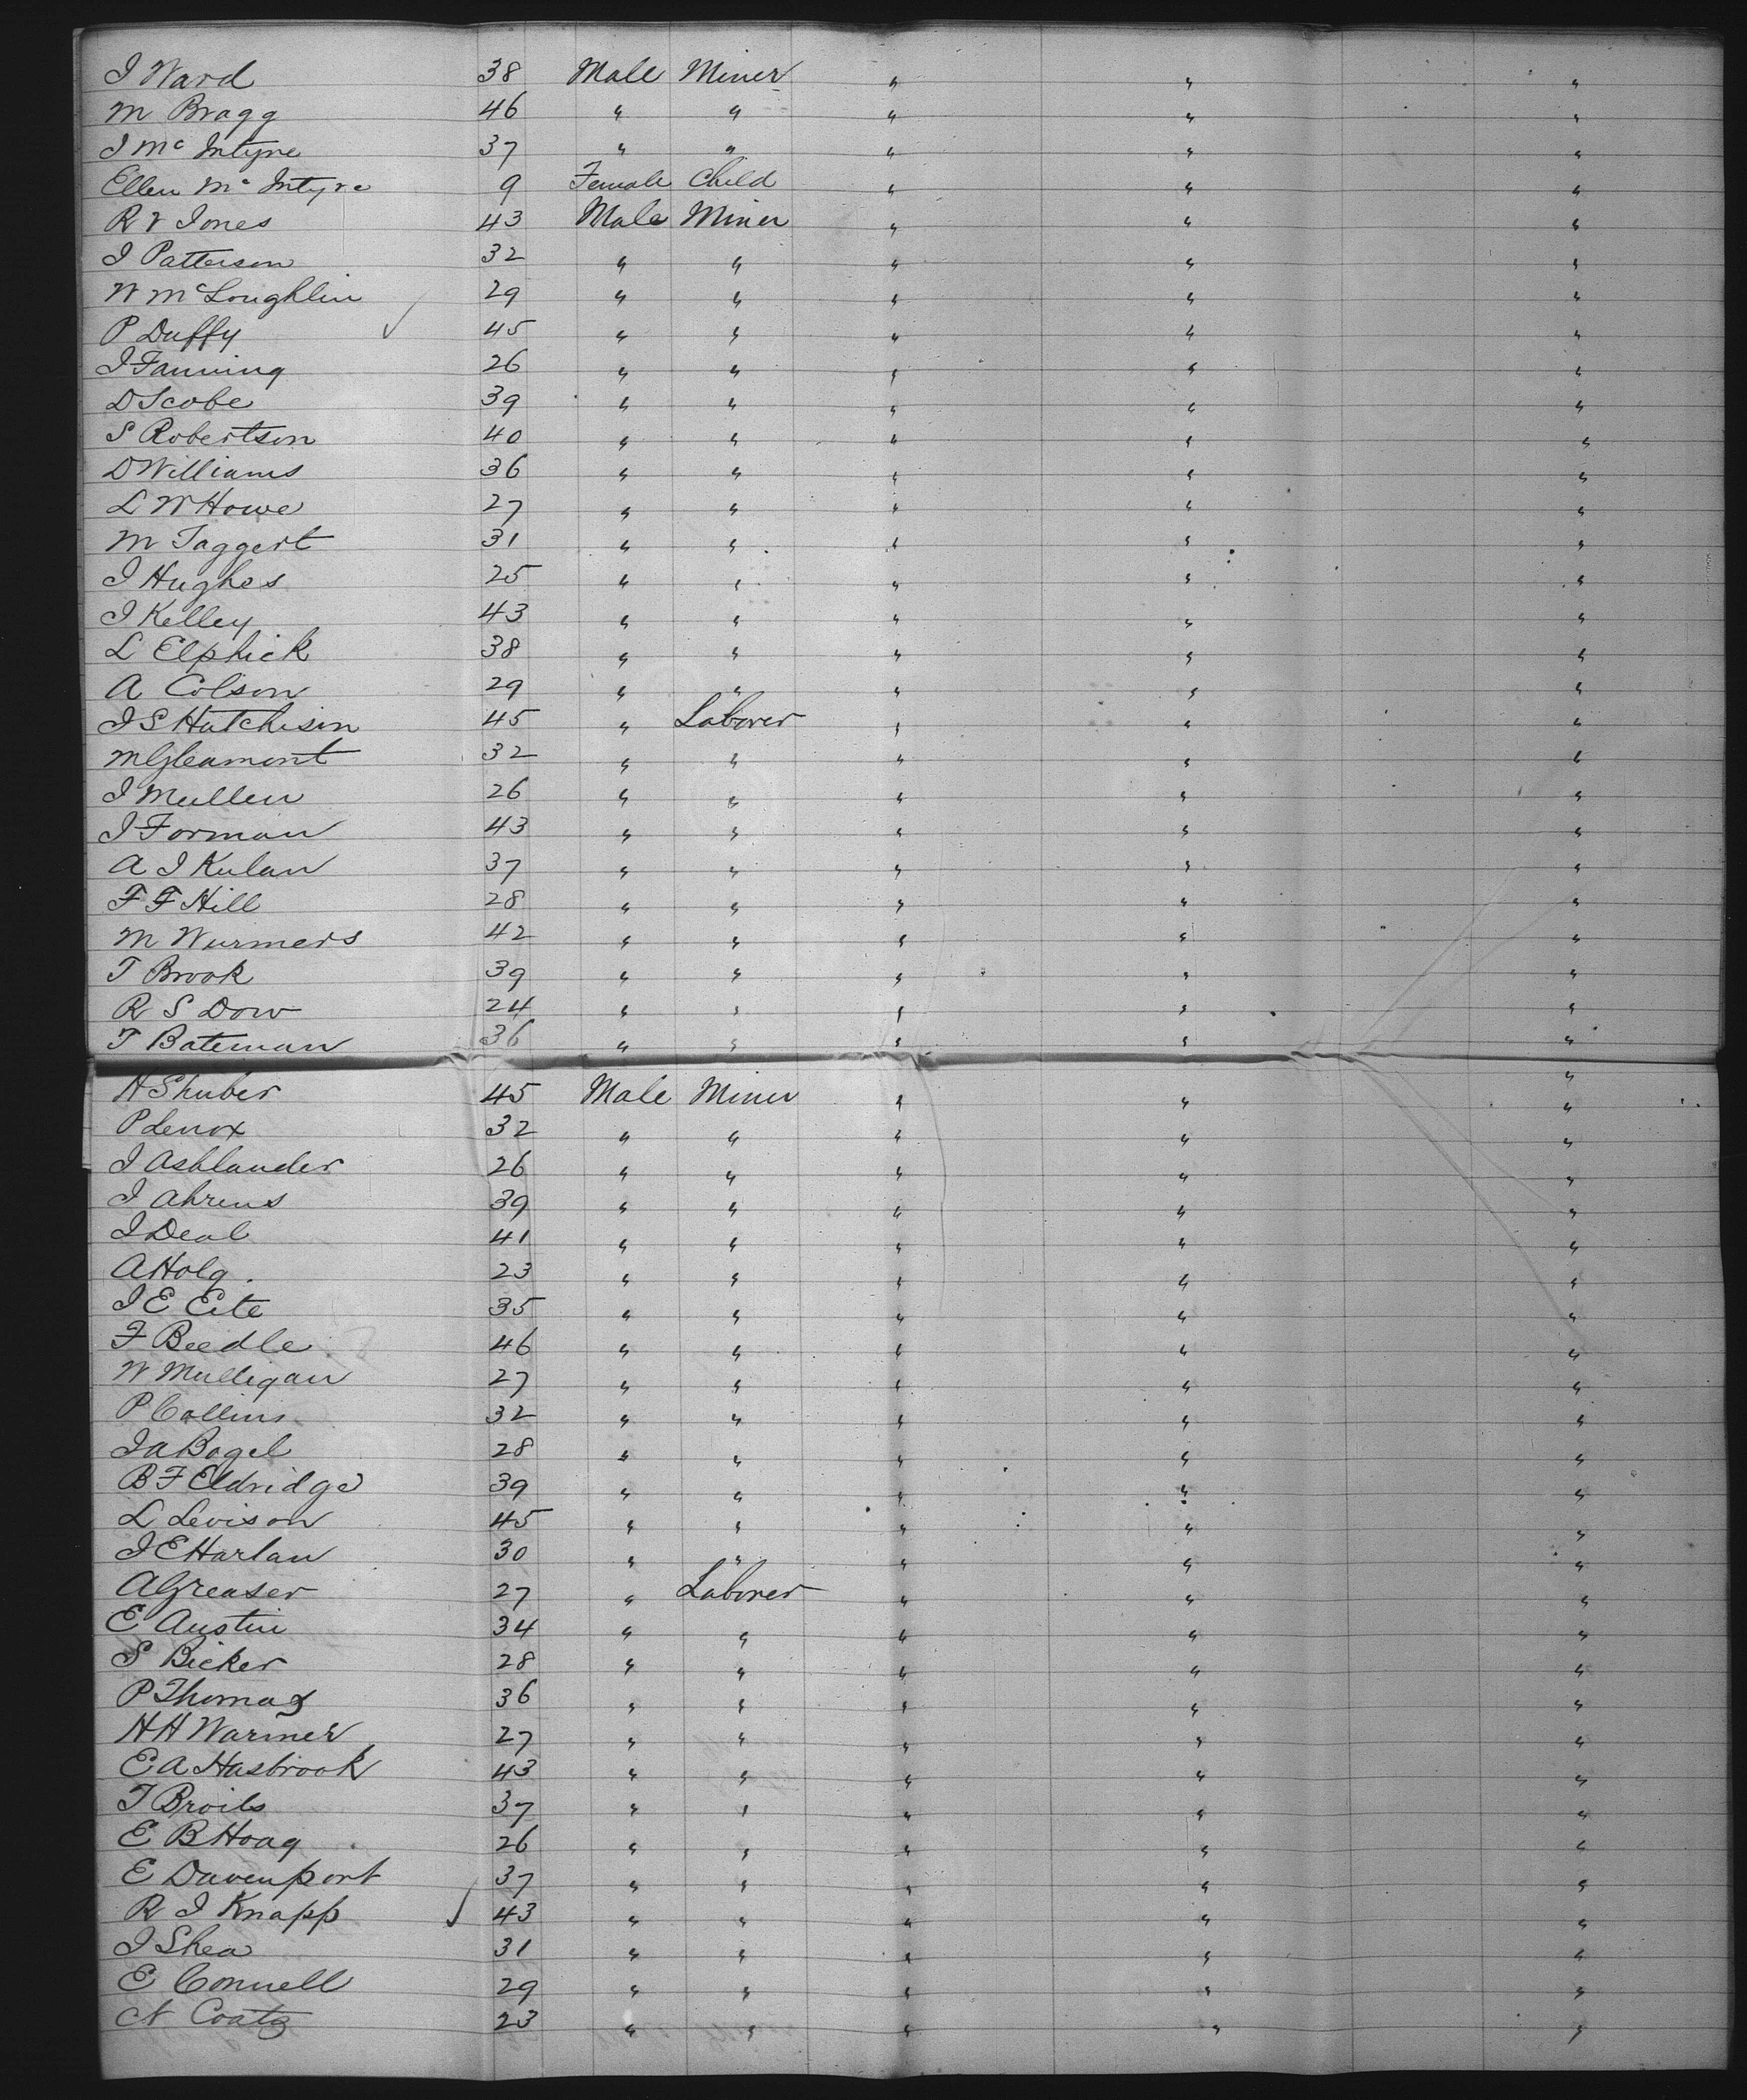 I Ward 38 Male Miner " " "
M Bragg 46 " " " " "
I McIntyre 37 " " " " "
Ellen McIntyre 9 Female Child " " "
R V Jones 43 Male Miner " " "
I Patterson 32 " " " " "
W McLoughlin 29 " " " " "
P Duffy 45 " " " " "
I Fanning 26 " " " " "
D Scobe 39 " " " " "
S Robertson 40 " " " " "
D Williams 36 " " " " "
L W Howe 27 " " " " "
M Taggert 31 " " " " "
I Hughes 25 " " " " "
I Kelley 43 " " " " "
L Elphick 38 " " " " "
A Colson 29 " " " " "
I S Hutchison 45 " Laborer " " "
M Gleamont 32 " " " " "
I Mullen 26 " " " " "
I Forman 43 " " " " "
A I Kulan 37 " " " " "
F F Hill 28 " " " " "
M Wurmers 42 " " " " "
T Brook 39 " " " " "
R S Dow 24 " " " " "
T Bateman 36 " " " " "
H Shuber 45 Male Miner " " "
P Lenox 32 " " " " "
I Ashlander 26 " " " " "
I Ahrens 39 " " " " "
I Deal 41 " " " " "
A Holg. 23 " " " " "
I E Eite 35 " " " " "
F Beedle 46 " " " " "
W Mulligan 27 " " " " "
P Collins 32 " " " " "
I A Bogel 28 " " " " "
B F Eldridge 39 " " " " "
L Levison 45 " " " " "
I E Harlan 30 " " " " "
A Greaser 27 " Laborer " " "
E Austin 34 " " " " "
S Bicker 28 " " " " "
P Thomas 36 " " " " "
H H Warmer 27 " " " " "
E A Hasbrook 43 " " " " "
T Broils 37 " " " " "
E B Hoag 26 " " " " "
E Davenport 37 " " " " "
R I Knapp 43 " " " " "
I Shea 31 " " " " "
E Connell 29 " " " " "
N Coats 23 " " " " "